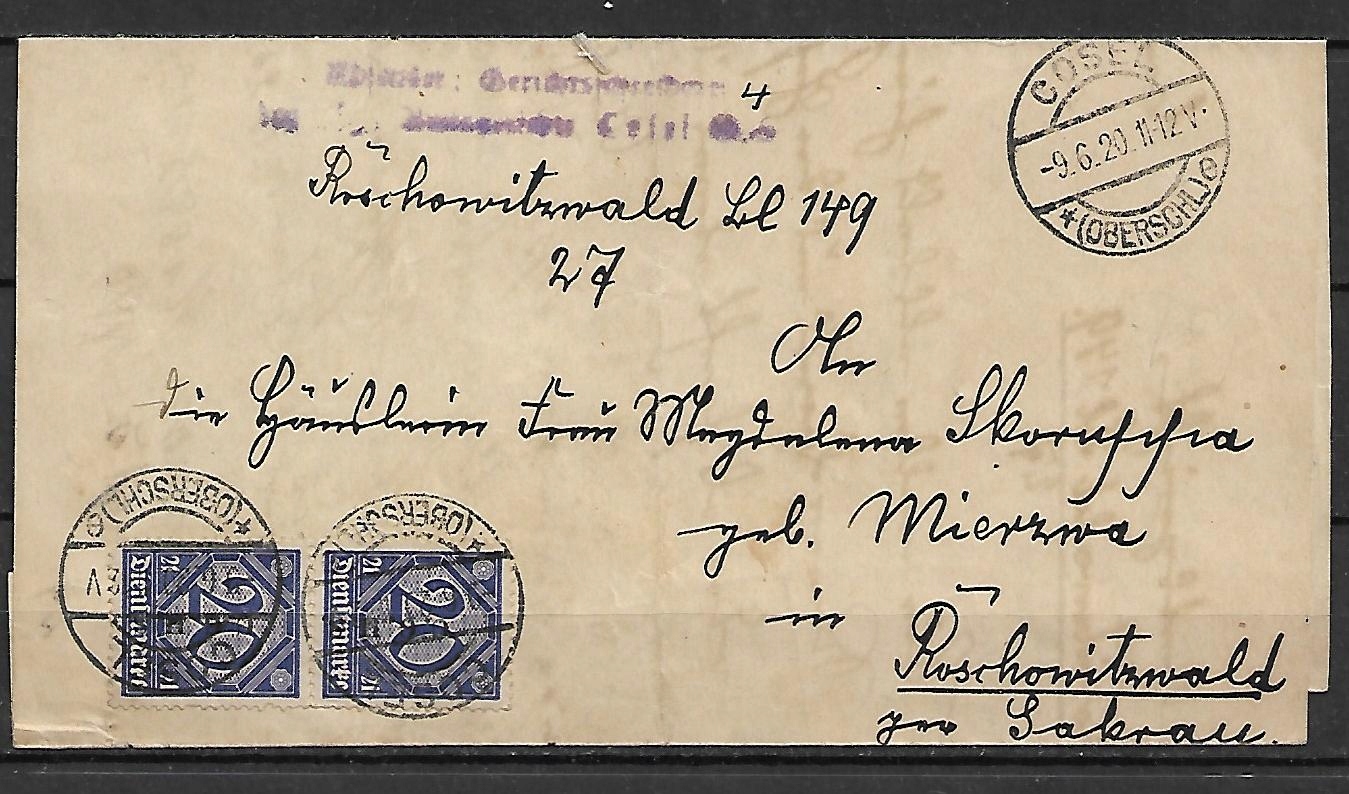 Absender: Gerichtsschreiberei 4
Amtsgerichts Cosel O.S.
COSEL
-9.6.20.11-12V.
*(OBERSCHL.)e
Roschowitzwald Bl 149
27
An
die Häuslerin Frau Magdalena Skoruppa
geb. Mierzwa
in
Roschowitzwald
per Sakrau.
*(OBERSCHL.)e
*(OBERSCHL
21 21
20
Dienstmarke
21 21
20
Dienstmarke